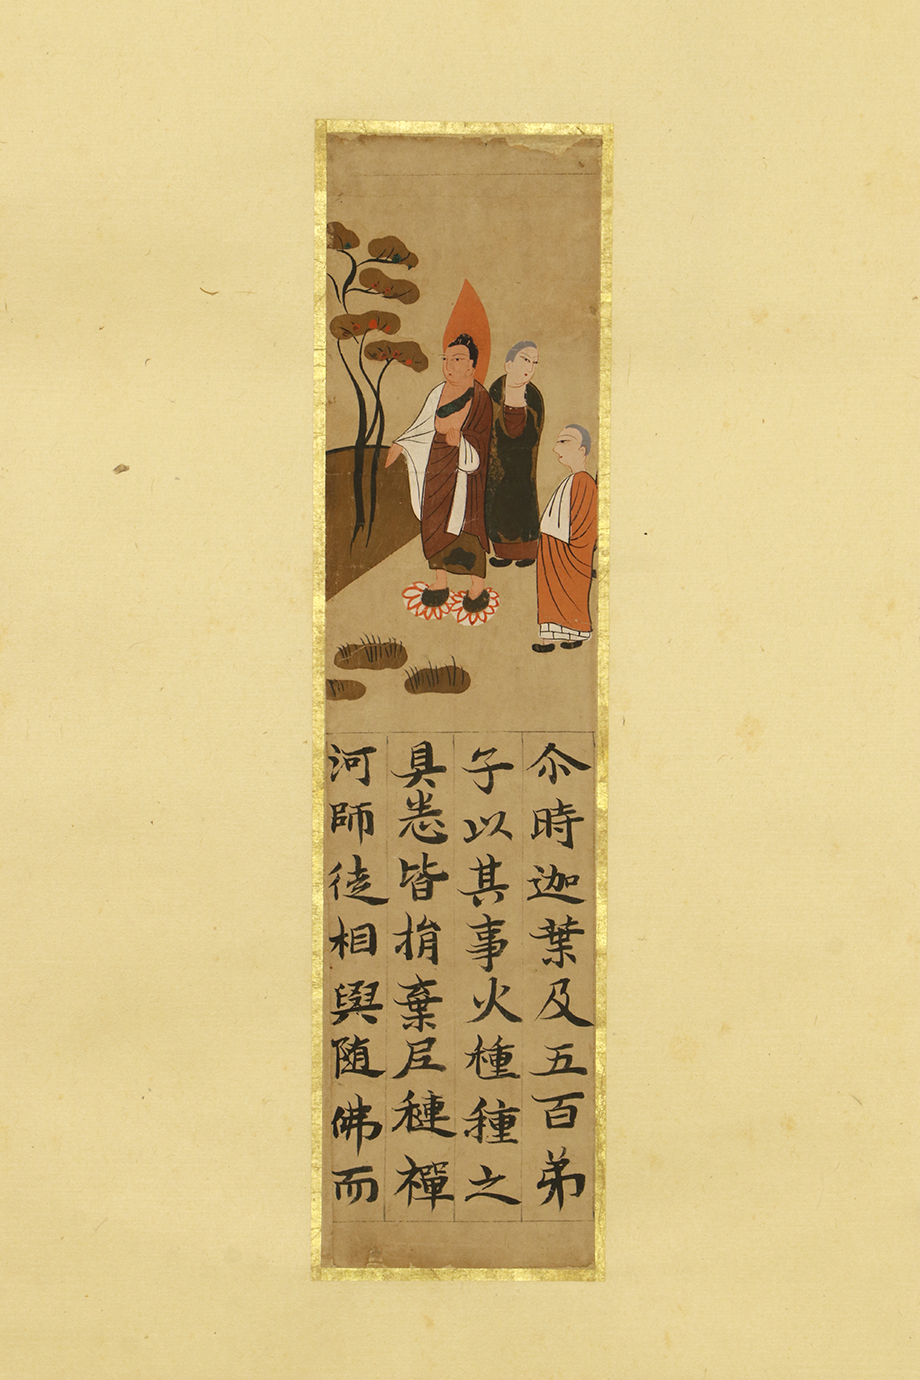 尒時迦葉及五百弟
子以其事火種種之
具悉皆捐棄尼連禪
河師徒相與随佛而